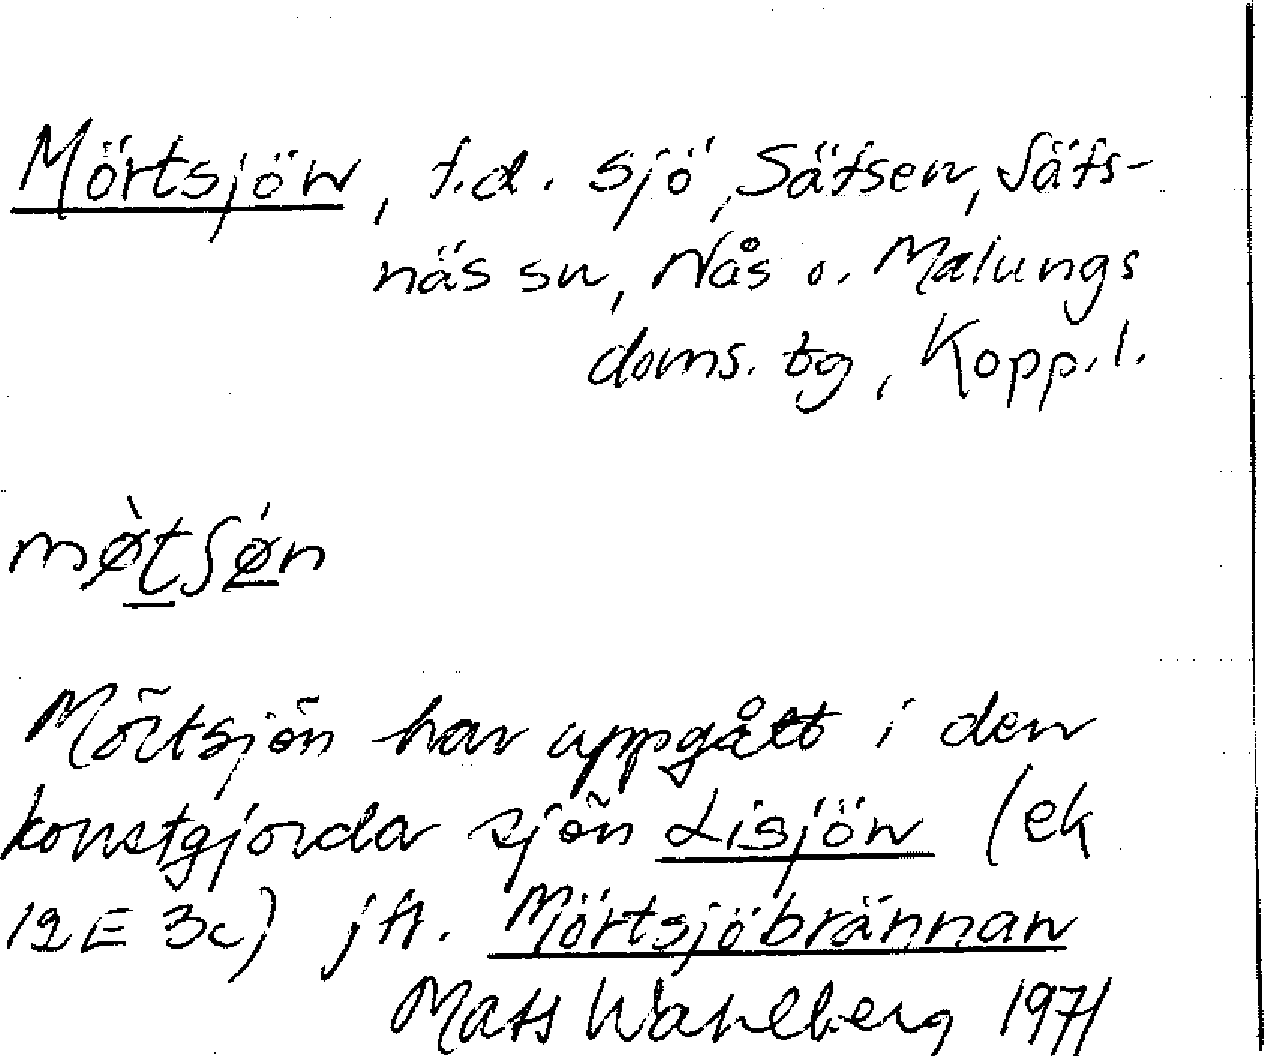 Mörtsjön, f.d. sjö, Säfsen, Säfs-
näs sn, Nås o. Malungs
doms. tg, Kopp. l.
mø̀tʃǿn
Mörtsjön har uppgått i den
konstgjorda sjön Lisjön (ek
12E 3c) jfr. Mörtsjöbrännan
Mats Wahlberg 1971